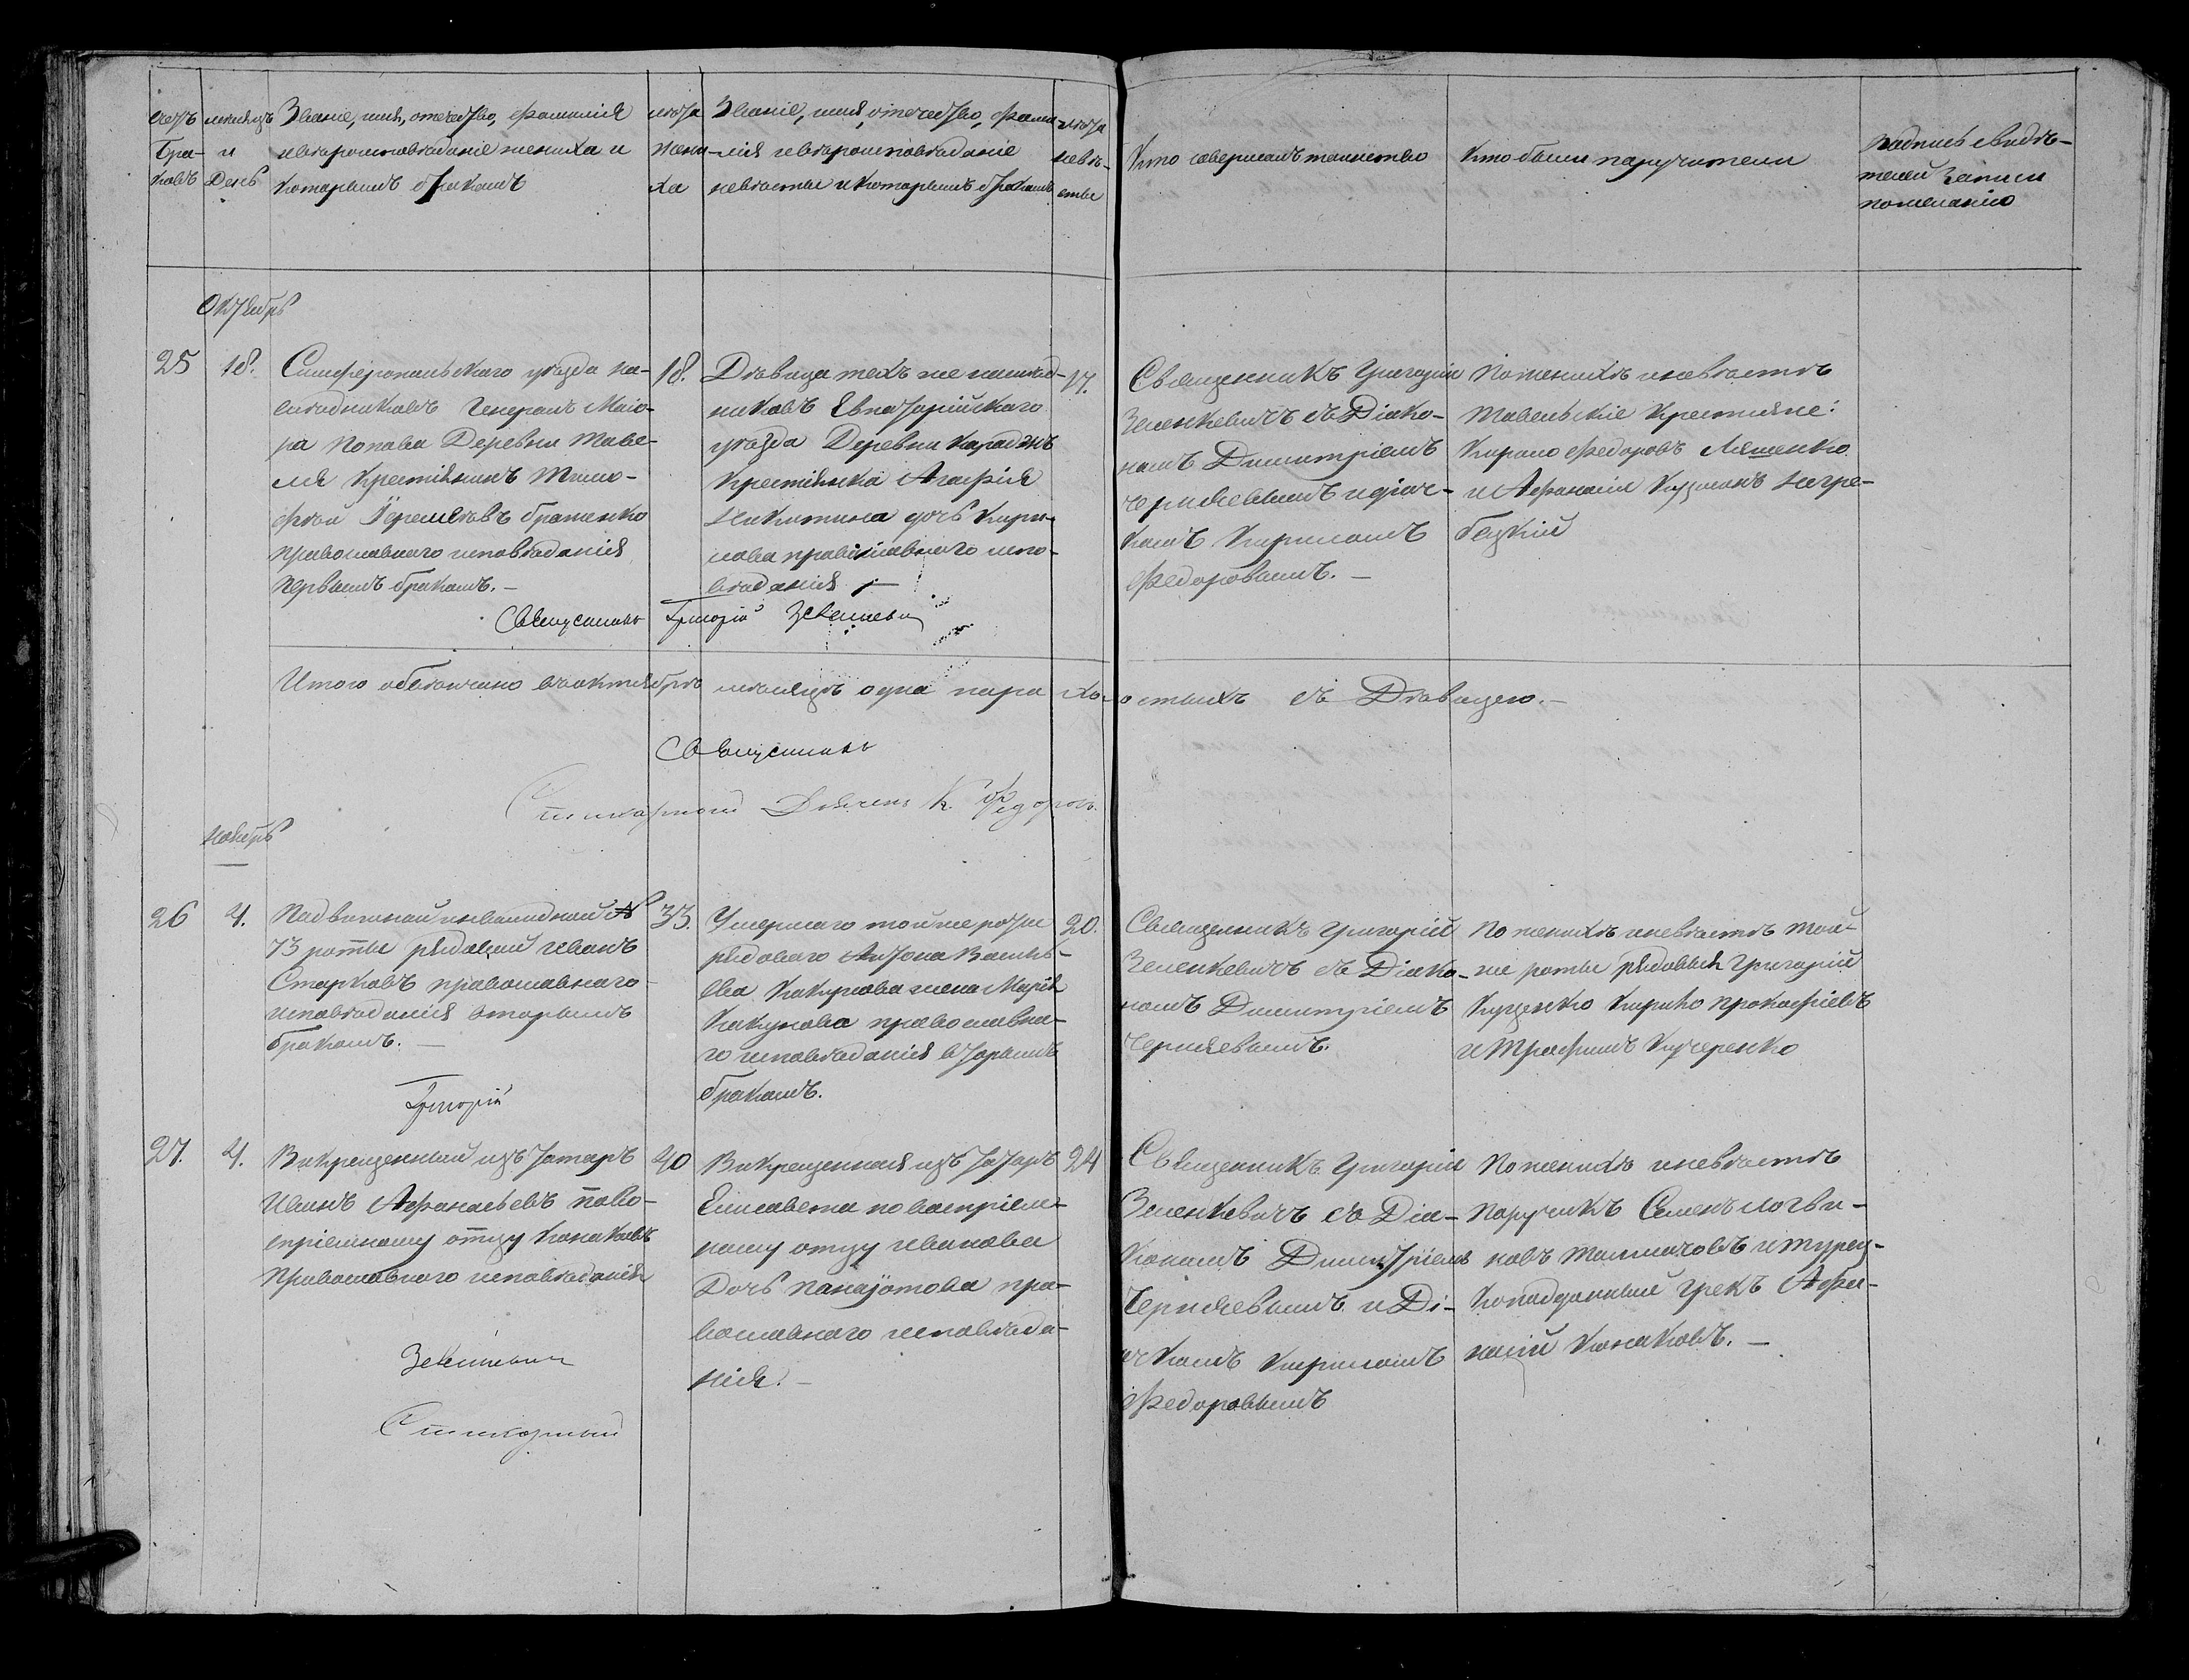 счетъ
бра-
ковъ
мѣсяцъ
и
День
Званіе, имя, отечество, фамилія
ивѣроисповѣданіе жениха и
которымъ бракомъ
лѣта
жени
ха
Званіе, имя, отечество, фами
лія ивѣроисповѣданіе
невѣсты икоторымъ бракомъ
лѣта
невѣ-
сты
Кто совершалъ таинство
Кто были паручители
Подпись свидѣ-
телей Записи
пожеланію
Октябрь
25
18.
Симферопольскаго уѣзда на-
слѣдниковъ Генералъ Маіо-
ра Попова Деревни Таве-
ля Крестянинъ Тимо-
фѣй Браженко
православнаго исповѣданія
первымъ бракомъ. —
18.
Дѣвица тѣхъ же наслѣд-
никовъ Евпаторійскаго
уѣзда Деревни Караджъ
Крестянка Агафія
Никитина дочь Кири-
лова православнаго испо-
вѣданія —
17.
Священникъ Григорій
Зеленкевичъ съ Діако-
номъ Димитріемъ
Черняевымъ идіач-
комъ Кириломъ
Федоровымъ. —
Поженихѣ иневѣстѣ
Тавельскіе Крестяне:
Кирило Федоровъ Ляшенко
и Афанасій Кузминъ Негре-
бецкій
Священникъ Григорій Зеленкевич
Итого обвѣнчано воктябрѣ мѣсяцѣ одна пара хо-
лостыхъ съ Дѣвицею. —
Священникъ
Стихарный Дьячекъ К. Федоровъ.
Ноябрь
26
4.
Подвижной инвалидной №
73 роты рядовой Иванъ
Старковъ православнаго
исповѣданія вторымъ
бракомъ. —
33.
Умершаго тойже роты
рядоваго Антона Василь-
ева Какунова жена Марія
Какунова православна-
го исповѣданія вторымъ
бракомъ.
20.
Священникъ Григорій
Зеленкевичъ съ Діако-
номъ Димитріемъ
Черняевымъ.
По женихѣ иневѣстѣ той-
же роты рядовыя Григорій
Куценко Кирило Прокофіевъ
и Трофимъ Кучеренко
Григорій
27.
4.
Викрещенный изъ татаръ
Иванъ Афанасьевъ пово-
спріемному отцу Конаковъ
православнаго исповѣданія
40
Викрещенная изъ татаръ
Елисавета по воспріем-
ному отцу Иванова
Дочь Панаіотова пра-
вославнаго исповѣда-
нія. —
24
Священникъ Григорій
Зеленкевичъ съ Діа-
кономъ Димитріемъ
Черняевымъ и Ді-
ячкомъ Кириломъ
Федоровымъ
По женихѣ иневѣстѣ
Поручикъ Семенъ Логви-
новъ Толмачовъ итурец-
коподданный Грекъ Афа-
насій Конаковъ. —
Зеленкевич
Стихарный